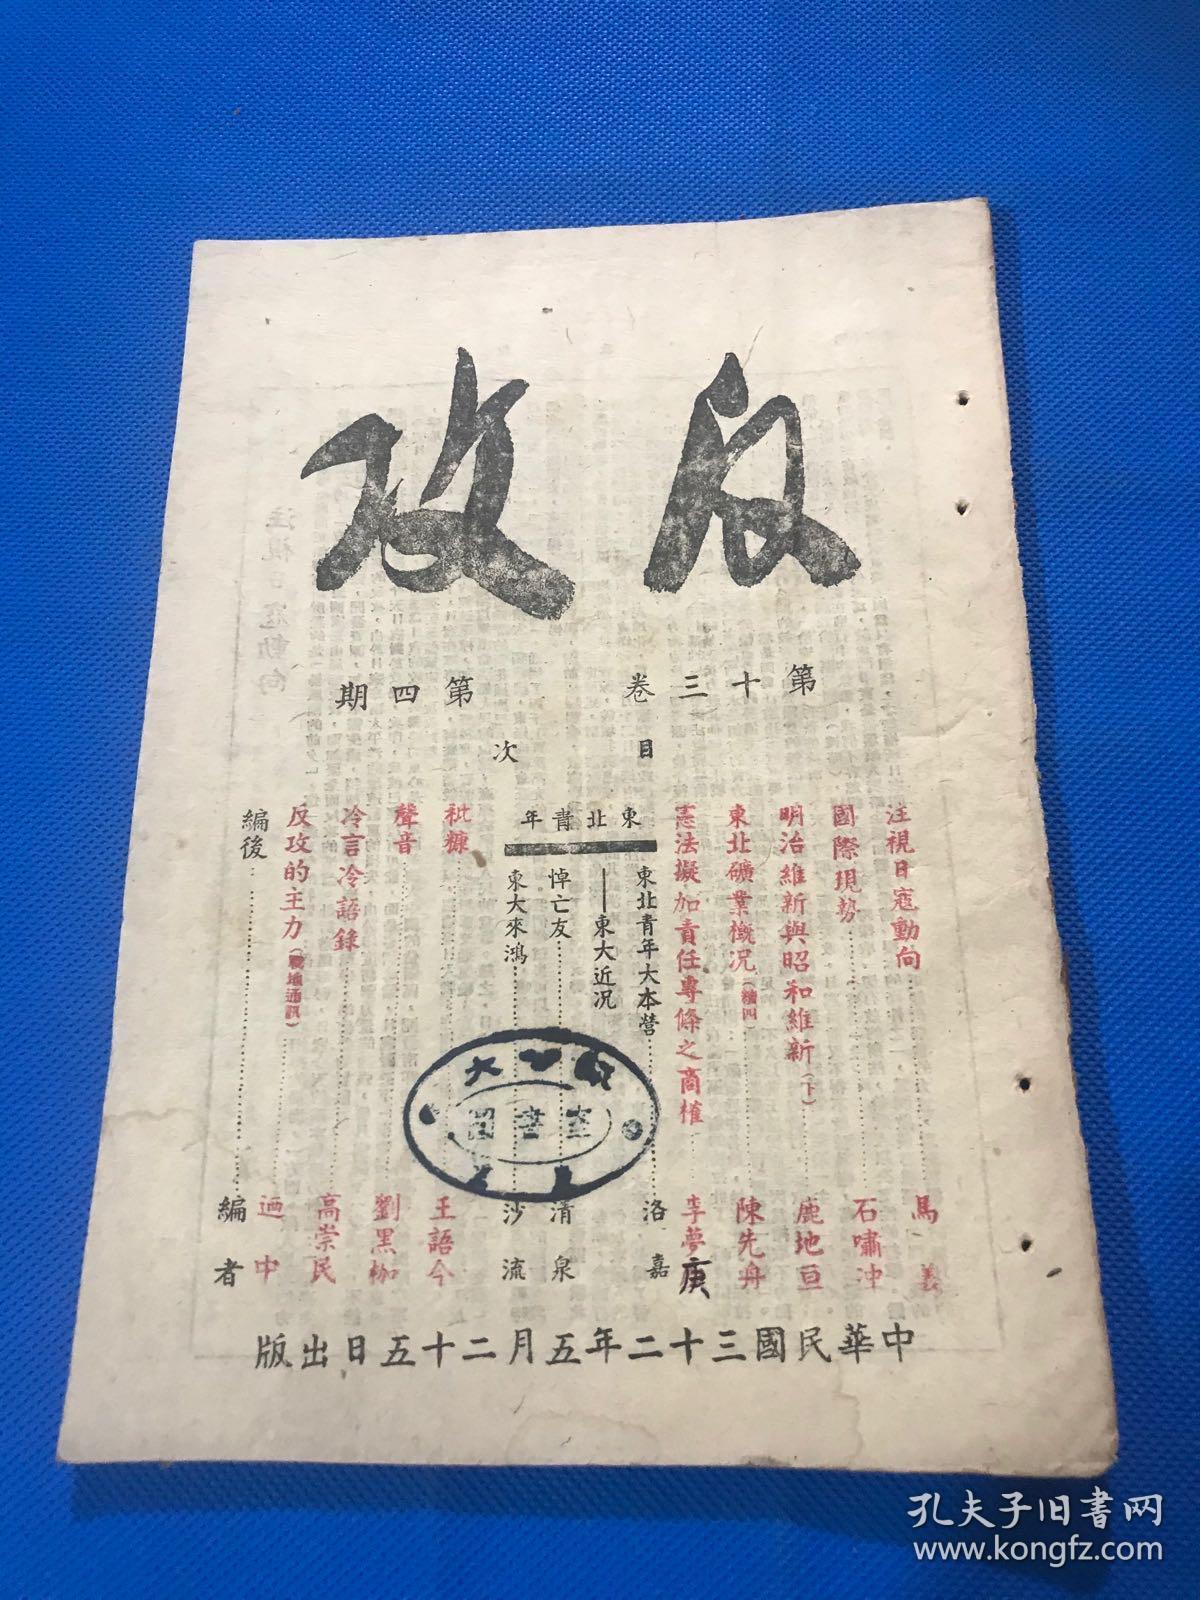 反攻
第十三卷 第四期
目次
注視日寇動向 馬義
國際現勢 石嘯冲
明治維新與昭和維新(下) 鹿地亘
東北礦業概况(續四) 陳先舟
憲法擬加責任專條之商榷 李夢庚
東北青年
東北青年大本營——東大近况 洛嘉
悼亡友 清泉
東大來鴻 沙流
秕糠 王語今
聲音 劉黑枷
冷言冷語錄 高崇民
反攻的主力(戰地通訊) 迺中
編後 編者
圖書室
中華民國三十二年五月二十五日出版
孔夫子旧书网
www.kongfz.com